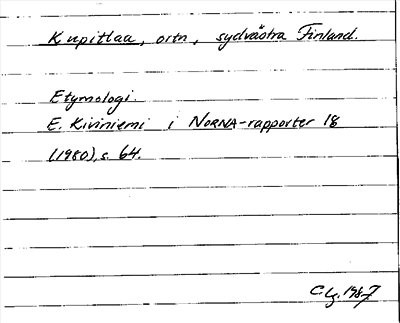 Kupitlaa, ortn, sydvästra Finland.
Etymologi.
E. Kiviniemi i NORNA-rapporter 18
(1980), s. 64.
C. Lg. 1987